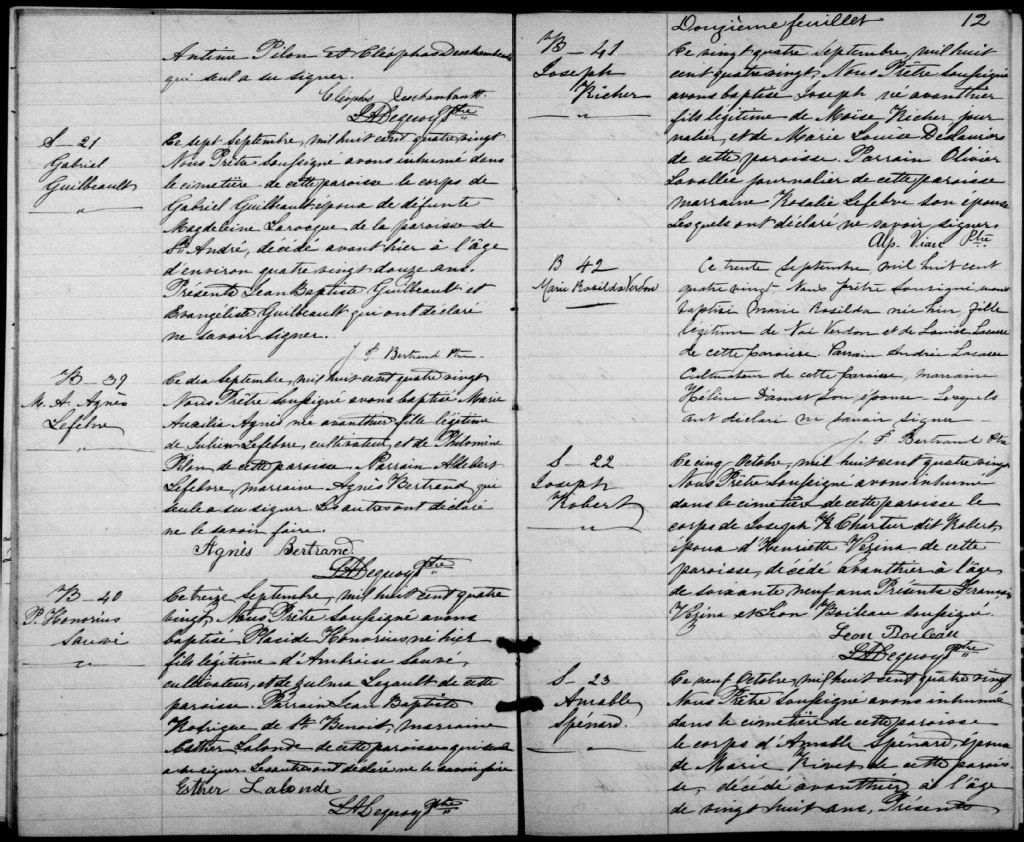 Antime Pilon et Cléophas Deschambault
qui seul a su signer.
Cléophs Deschambault
Ptre
S – 21
Gabriel
Guilbeault
Ce sept Septembre, mil huit cent quatre vingt
Nous Prêtre soussigné avons inhumé dans
le cimetière de cette paroisse le corps de
Gabriel Guilbeault, époux de défunte
Magdeleine Larocque de la paroisse de
St André, décédé avant hier à l'âge
d'environ quatre vingt douze ans.
Présents Jean Baptiste Guilbeault et
Evangéliste Guilbeault qui ont déclaré
ne savoir signer.
J. P. Bertrand Ptre
B – 39
M. A. Agnès
Lefebvre
Ce dix Septembre, mil huit cent quatre vingt
Nous Prêtre soussigné avons baptisé Marie
Auxilia Agnès née avanthier fille légitime
de Julien Lefebvre, cultivateur, et de Philomène
Pilon, de cette paroisse. Parrain Aldebert
Lefebvre, marraine Agnès Bertrand qui
seule a su signer. Les autres ont déclaré
ne le savoir faire.
Agnès Bertrand
Ptre
B – 40
P. Honorius
Sauvé
Ce treize Septembre, mil huit cent quatre
vingt, Nous Prêtre soussigné avons
baptisé Placide Honorius né hier
fils légitime d'Ambroise Sauvé,
cultivateur, et de Zulma Legault de cette
paroisse. Parrain Jean Baptiste
Rodrigue de St Benoit, marraine
Esther Lalonde de cette paroisse qui seule
a su signer. Les autres ont déclaré ne le savoir faire
Esther Lalonde
Ptre
Douzième feuillet 12
B – 41
Joseph
Richer
Ce vingt quatre Septembre, mil huit
cent quatre vingt, Nous Prêtre soussigné
avons baptisé Joseph né avanthier
fils légitime de Moïse Richer jour
nalier, et de Marie Louise Deslauriers
de cette paroisse. Parrain Olivier
Lavallée journalier de cette paroisse
marraine Rosalie Lefebvre son épouse
Lesquels ont déclaré ne savoir signer.
Alp. Viau Ptre
B 42
Marie Rosilda Verdon
Ce trente Septembre, mil huit cent
quatre vingt Nous prêtre soussigné avons
baptisé Marie Rosilda née hier fille
légitime de Noé Verdon et de Louise
de cette paroisse. Parrain André
Cultivateur de cette paroisse, marraine
Hélène son épouse. Lesquels
ont déclaré ne savoir signer
J. P. Bertrand Ptre
S – 22
Joseph
Robert
Ce cinq Octobre, mil huit cent quatre vingt
Nous Prêtre soussigné avons inhumé
dans le cimetière de cette paroisse le
corps de Joseph Chartier dit Robert,
époux d'Henriette Vezina de cette
paroisse, décédé avanthier à l'âge
de soixante neuf ans. Présents François
Vezina et Léon Boileau soussigné
Leon Boileau
Ptre
S – 23
Amable
Spénard.
Ce neuf Octobre, mil huit cent quatre vingt
Nous Prêtre soussigné avons inhumé
dans le cimetière de cette paroisse
le corps d'Amable Spénard, époux
de Marie Rivet de cette parois
se, décédé avanthier, à l'âge
de vingt huit ans, Présents